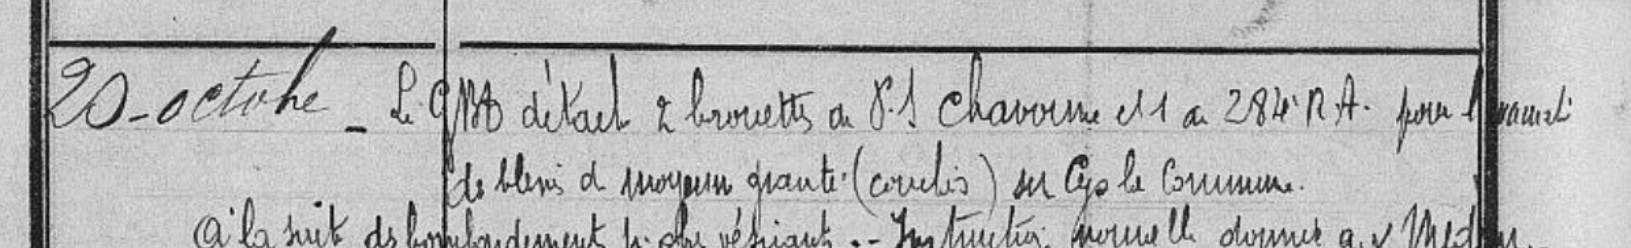 20 octobre _ Le GBD détach 2 brouettes au P.S Chavonne et 1 au 284e R.A. pour l'évacuati
des blessés de moyenne gravité (couchés) sur Cys la Commune.
A la suite des bombardements p. obus vésicants. - Instruction nouvelle donnée aux Médecins